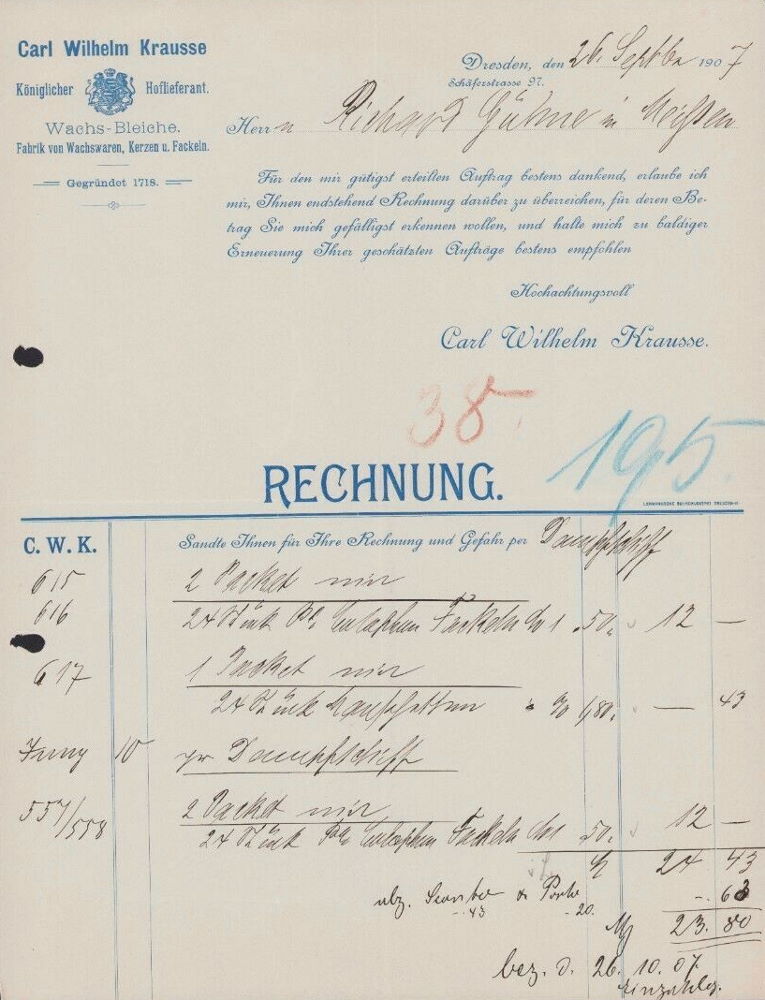 Carl Wilhelm Krausse
Königlicher Hoflieferant.
Wachs-Bleiche.
Fabrik von Wachswaren, Kerzen u. Fackeln.
Gegründet 1718.
Dresden, den 26. Septbr 1907
Schäferstrasse 97.
Herrn Richard Gühne in Meißen
Für den mir gütigst erteilten Auftrag bestens dankend, erlaube ich
mir, Ihnen endstehend Rechnung darüber zu überreichen, für deren Be-
trag Sie mich gefälligst erkennen wollen, und halte mich zu baldiger
Erneuerung Ihrer geschätzten Aufträge bestens empfohlen
Hochachtungsvoll
Carl Wilhelm Krausse.
38.
195.
RECHNUNG.
C. W. K. Sandte Ihnen für Ihre Rechnung und Gefahr per Dampfschiff
615 2 Packet
616 24 Stück Fackeln 50. 12 —
617 1 Packet
24 Stück Manschetten % 1,80. — 43
Juny 10 pr Dampfschiff
557/558 2 Packet
24 Stück Fackeln 50. 12 —
24 43
abz. Sconto & Porto -.63
-.43 -.20.
M 23.80
bez. d. 26.10.07.